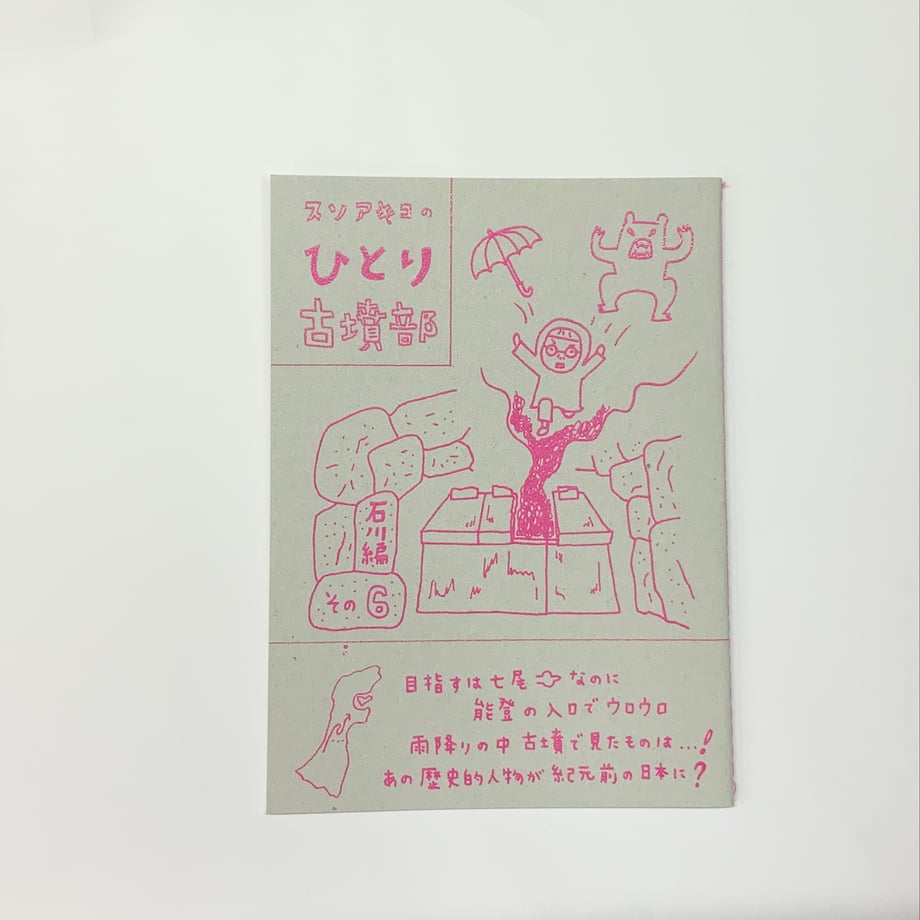 スソアキコの
ひとり
古墳部
石川編
その6
目指すは七尾なのに
能登の入口でウロウロ
雨降りの中古墳で見たものは…!
あの歴史的人物が紀元前の日本に?